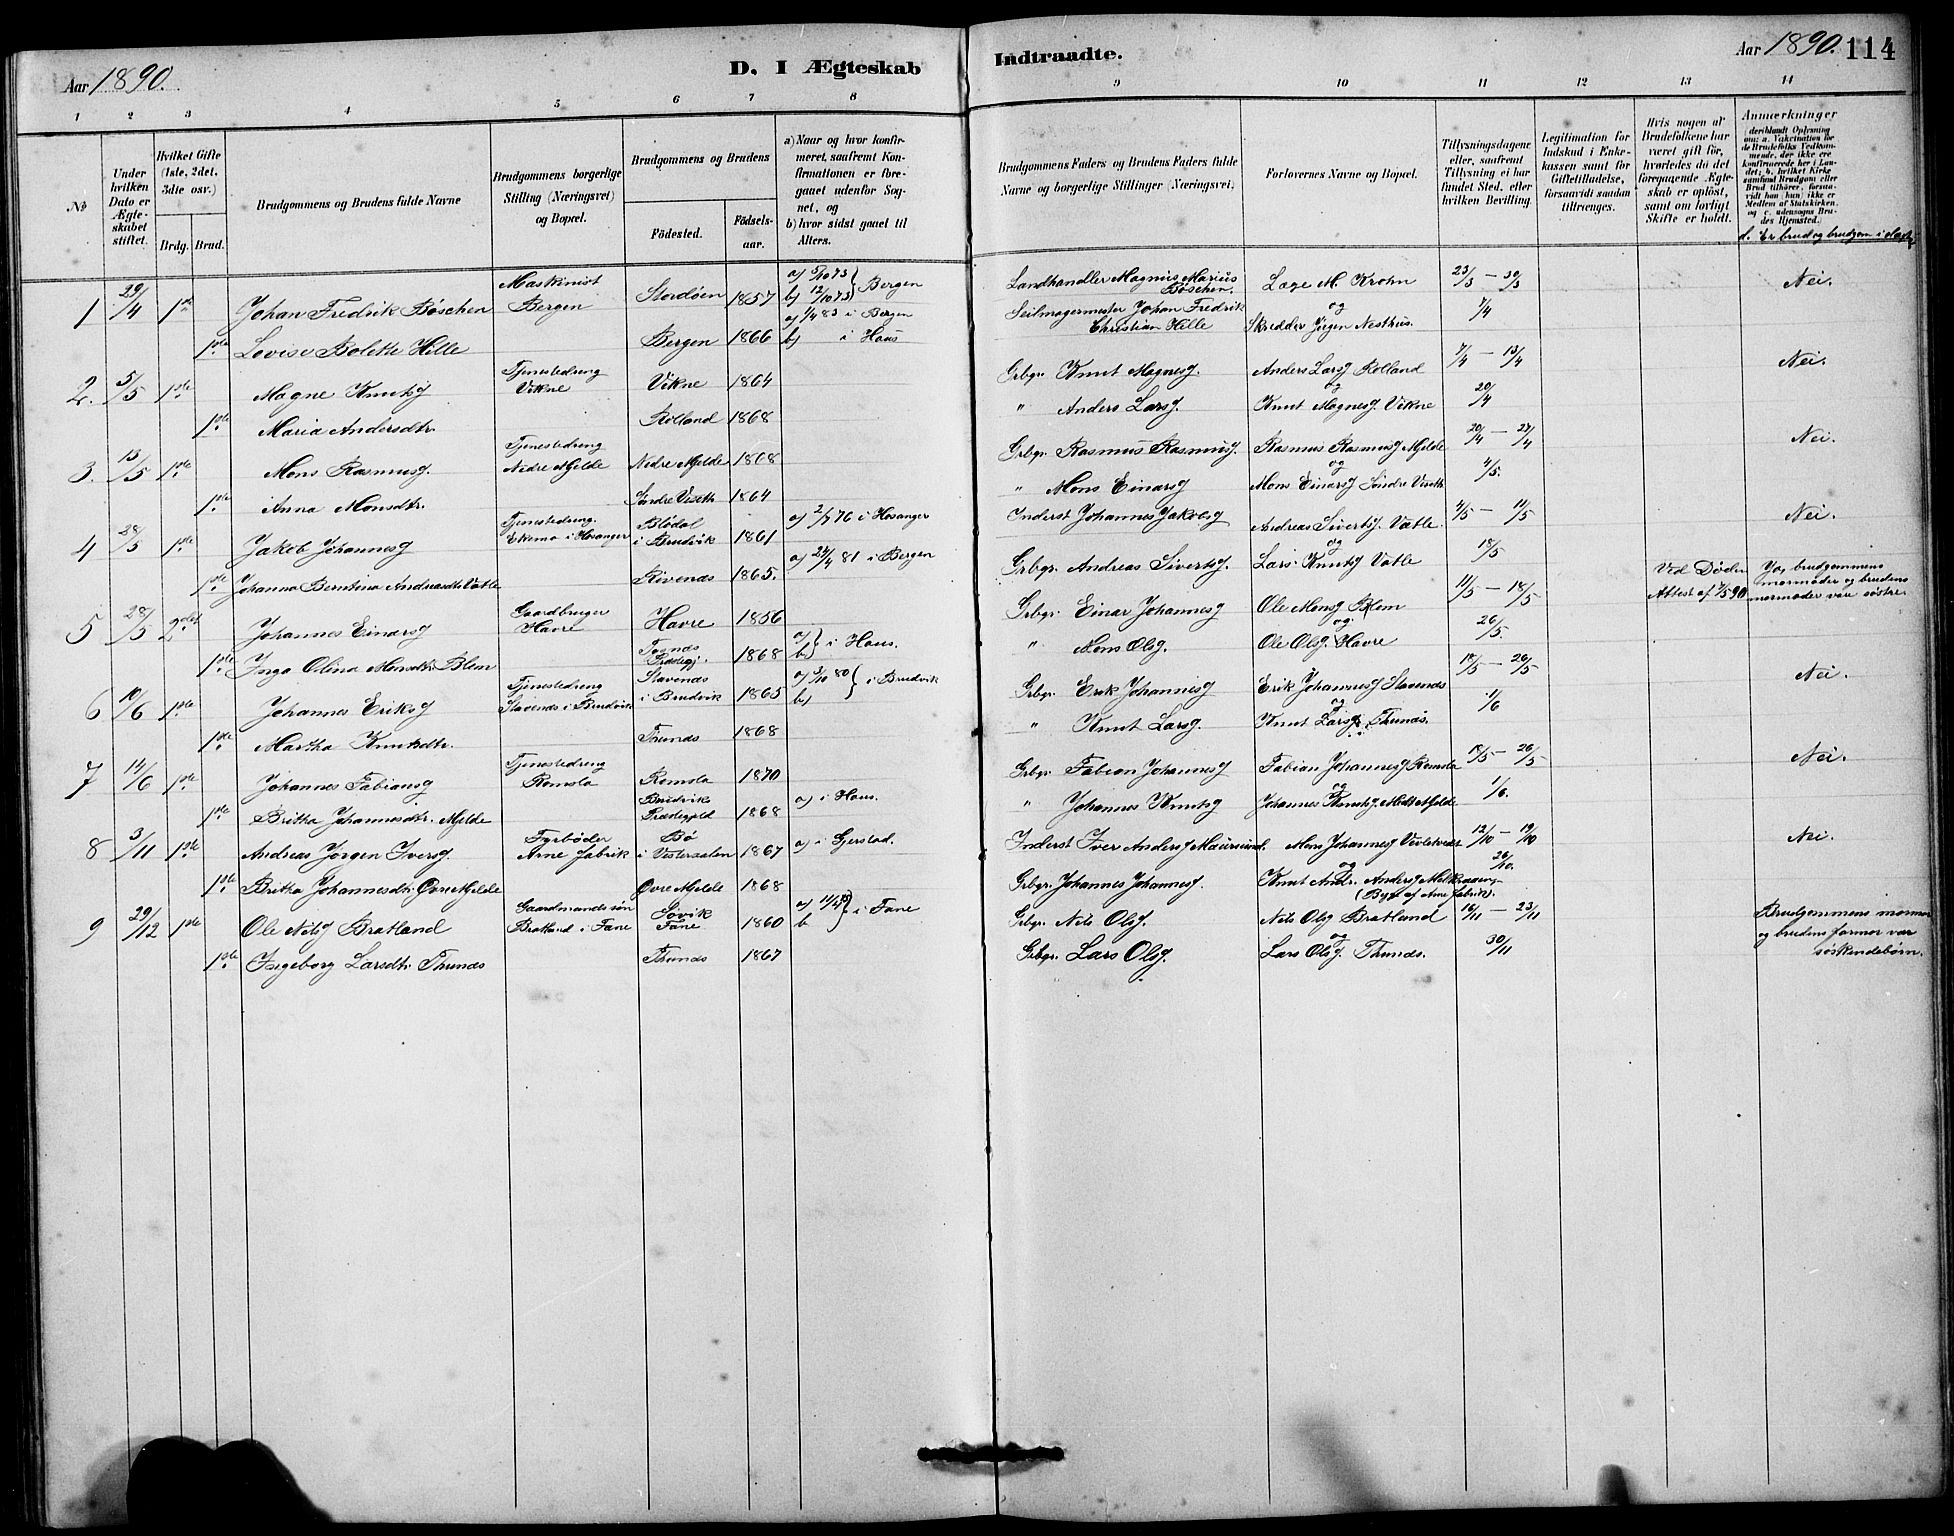 Aar 1890.
D. I Ægteskab
Indtraadte.
Aar 1890. 114
1 2 3 4 5 6 7 8 9 10 11 12 13 14
№
Under hvilken Dato er Ægteskabet stiftet.
Hvilket Gifte (1ste, 2det, 3die osv.)
Brdg. Brud.
Brudgommens og Brudens fulde Navne
Brudgommens borgerlige Stilling (Næringsvei) og Bopæl.
Brudgommens og Brudens
Fødested. Fødsels-aar.
a) Naar og hvor konfirmeret, saafremt Konfirmationen er foregaaet udenfor Sognet, og
b) hvor sidst gaaet til Alters.
Brudgommens Faders og Brudens Faders fulde Navne og borgerlige Stillinger (Næringsvei)
Forlovernes Navne og Bopæl.
Tillysningsdagene eller, saafremt Tillysning ei har fundet Sted, efter hvilken Bevilling.
Legitimation for Indskud i Enkekassen samt for Giftetilladelse, forsaavidt saadan tiltrænges.
Hvis nogen af Brudefolkene har været gift før, hvorledes da det foregaaende Ægteskab er opløst, samt om lovligt Skifte er holdt.
Anmærkninger
deriblandt Oplysning om: a. Vakcination for de Brudefolks Vedkommende, der ikke ere konfirmerede her i Landet; b. hvilket Kirkesamfund Brudgom eller Brud tilhører, forsaavidt han (hun) ikke er Medlem af Statskirken, og c. udensogns Brudes Hjemsted.
d. Er brud og brudgom i slægt
1 29/4 1ste Johan Fredrik Bøschen Maskinist Bergen Stordøen 1857 a) 5/10 73 b) 12/10 73 Bergen Landhandler Magnus Marius Bøschen. Læge M. Krohn 23/3 — 30/3 Nei.
1ste Lovise Bolette Hille Bergen 1866 a) 1/4 83 i Bergen b) i Haus Seilmagermester Johan Fredrik Christian Hille og Skredder Jørgen Nesthus. 7/4
2. 5/5 1ste Magne Knutsg Tjenestedreng Vikne Vikne 1864 Grbgr. Knut Magnesg. Anders Larsg Rolland 7/4 — 13/4 Nei.
1ste Maria Andersdtr. Rolland 1868 " Anders Larsg. og Knut Magnesg. Vikne 20/4
3. 15/5 1ste Mons Rasmusg. Tjenestedreng Nedre Mjelde Nedre Mjelde 1868 Grbgr. Rasmus Rasmusg. Rasmus Rasmusg Mjelde 20/4 — 27/4 Nei.
1ste Anna Monsdtr. Søndre Viseth 1864 " Mons Einarsg og Mons Einarsg Søndre Viseth 4/5.
4 28/5 1ste Jakob Johannesg Tjenestedreng. Ekemo i Hosanger Blødal i Brudvik 1861 a) 2/7 76 i Hosanger Inderst Johannes Jakobsg Andreas Sivertsg. Vatle 4/5 — 11/5 Nei.
1ste Johanna Berntina Andreasdtr Vatle Rivenæs 1865. a) 24/4 81 i Bergen Grbgr. Andreas Sivertsg. og Lars Knutsg Vatle 18/5
5 28/5 2det Johannes Einarsg Gaardbruger Havre Havre 1856 Grbgr. Einar Johannesg Ole Monsg Blem 11/5 — 18/5 Ved Døden Attest af 17/5 90 Ja, brudgommens mormoder og brudens mormoder vare søstre.
1ste Inga Olina Monsdtr. Blem Præstegj. 1868 a) b) i Haus. " Mons Olsg. og Ole Olsg. Havre 26/5.
6 10/6 1ste Johannes Eriksg Tjenestedreng Stavenæs i Brudvik Stavenæs i Brudvik 1865 a) 3/10 80 b) i Brudvik Grbgr. Erik Johannesg Erik Johannesg Stavenæs 18/5 — 26/5 Nei.
1ste Martha Knutsdtr. Thunæs 1868 " Knut Larsg. og Knut Larsg. Thunæs. 1/6
7 14/6 1ste Johannes Fabiansg Tjenestedreng Romsla Romsla 1870 Grbgr. Fabian Johannesg Fabian Johannesg Romsla 18/5 — 26/5 Nei.
1ste Britha Johannesdtr. Mjelde Brudviks Præstegjeld 1868 a) i Haus. " Johannes Knutsg og Johannes Knutsg Midt Mjelde 1/6.
8 3/11 1ste Andreas Jørgen Iversg. Fyrbøder Arne fabrik Bø i Vesteraalen 1867 a) i Gjerstad. Inderst Iver Andersg Maursund. Mons Johannesg 12/10 — 19/10 Nei.
1ste Britha Johannesdtr. Øvre Mjelde Øvre Mjelde 1868 Grbgr. Johannes Johannesg. og Knut Andr. Andersg (Byg. af Arne fabrik). 26/10.
9 29/12 1ste Ole Nilsg Bratland Gaardmandssøn Bratland i Fane Søvik Fane 1860 a) b i Fane Grbgr. Nils Olsg. Nils Olsg Bratland 16/11 — 23/11 Brudgommens mormor og brudens farmor var søskendebørn.
1ste Ingeborg Larsdtr. Thunæs Thunæs 1867 Grbgr. Lars Olsg. og Lars Olsg. Thunæs. 30/11